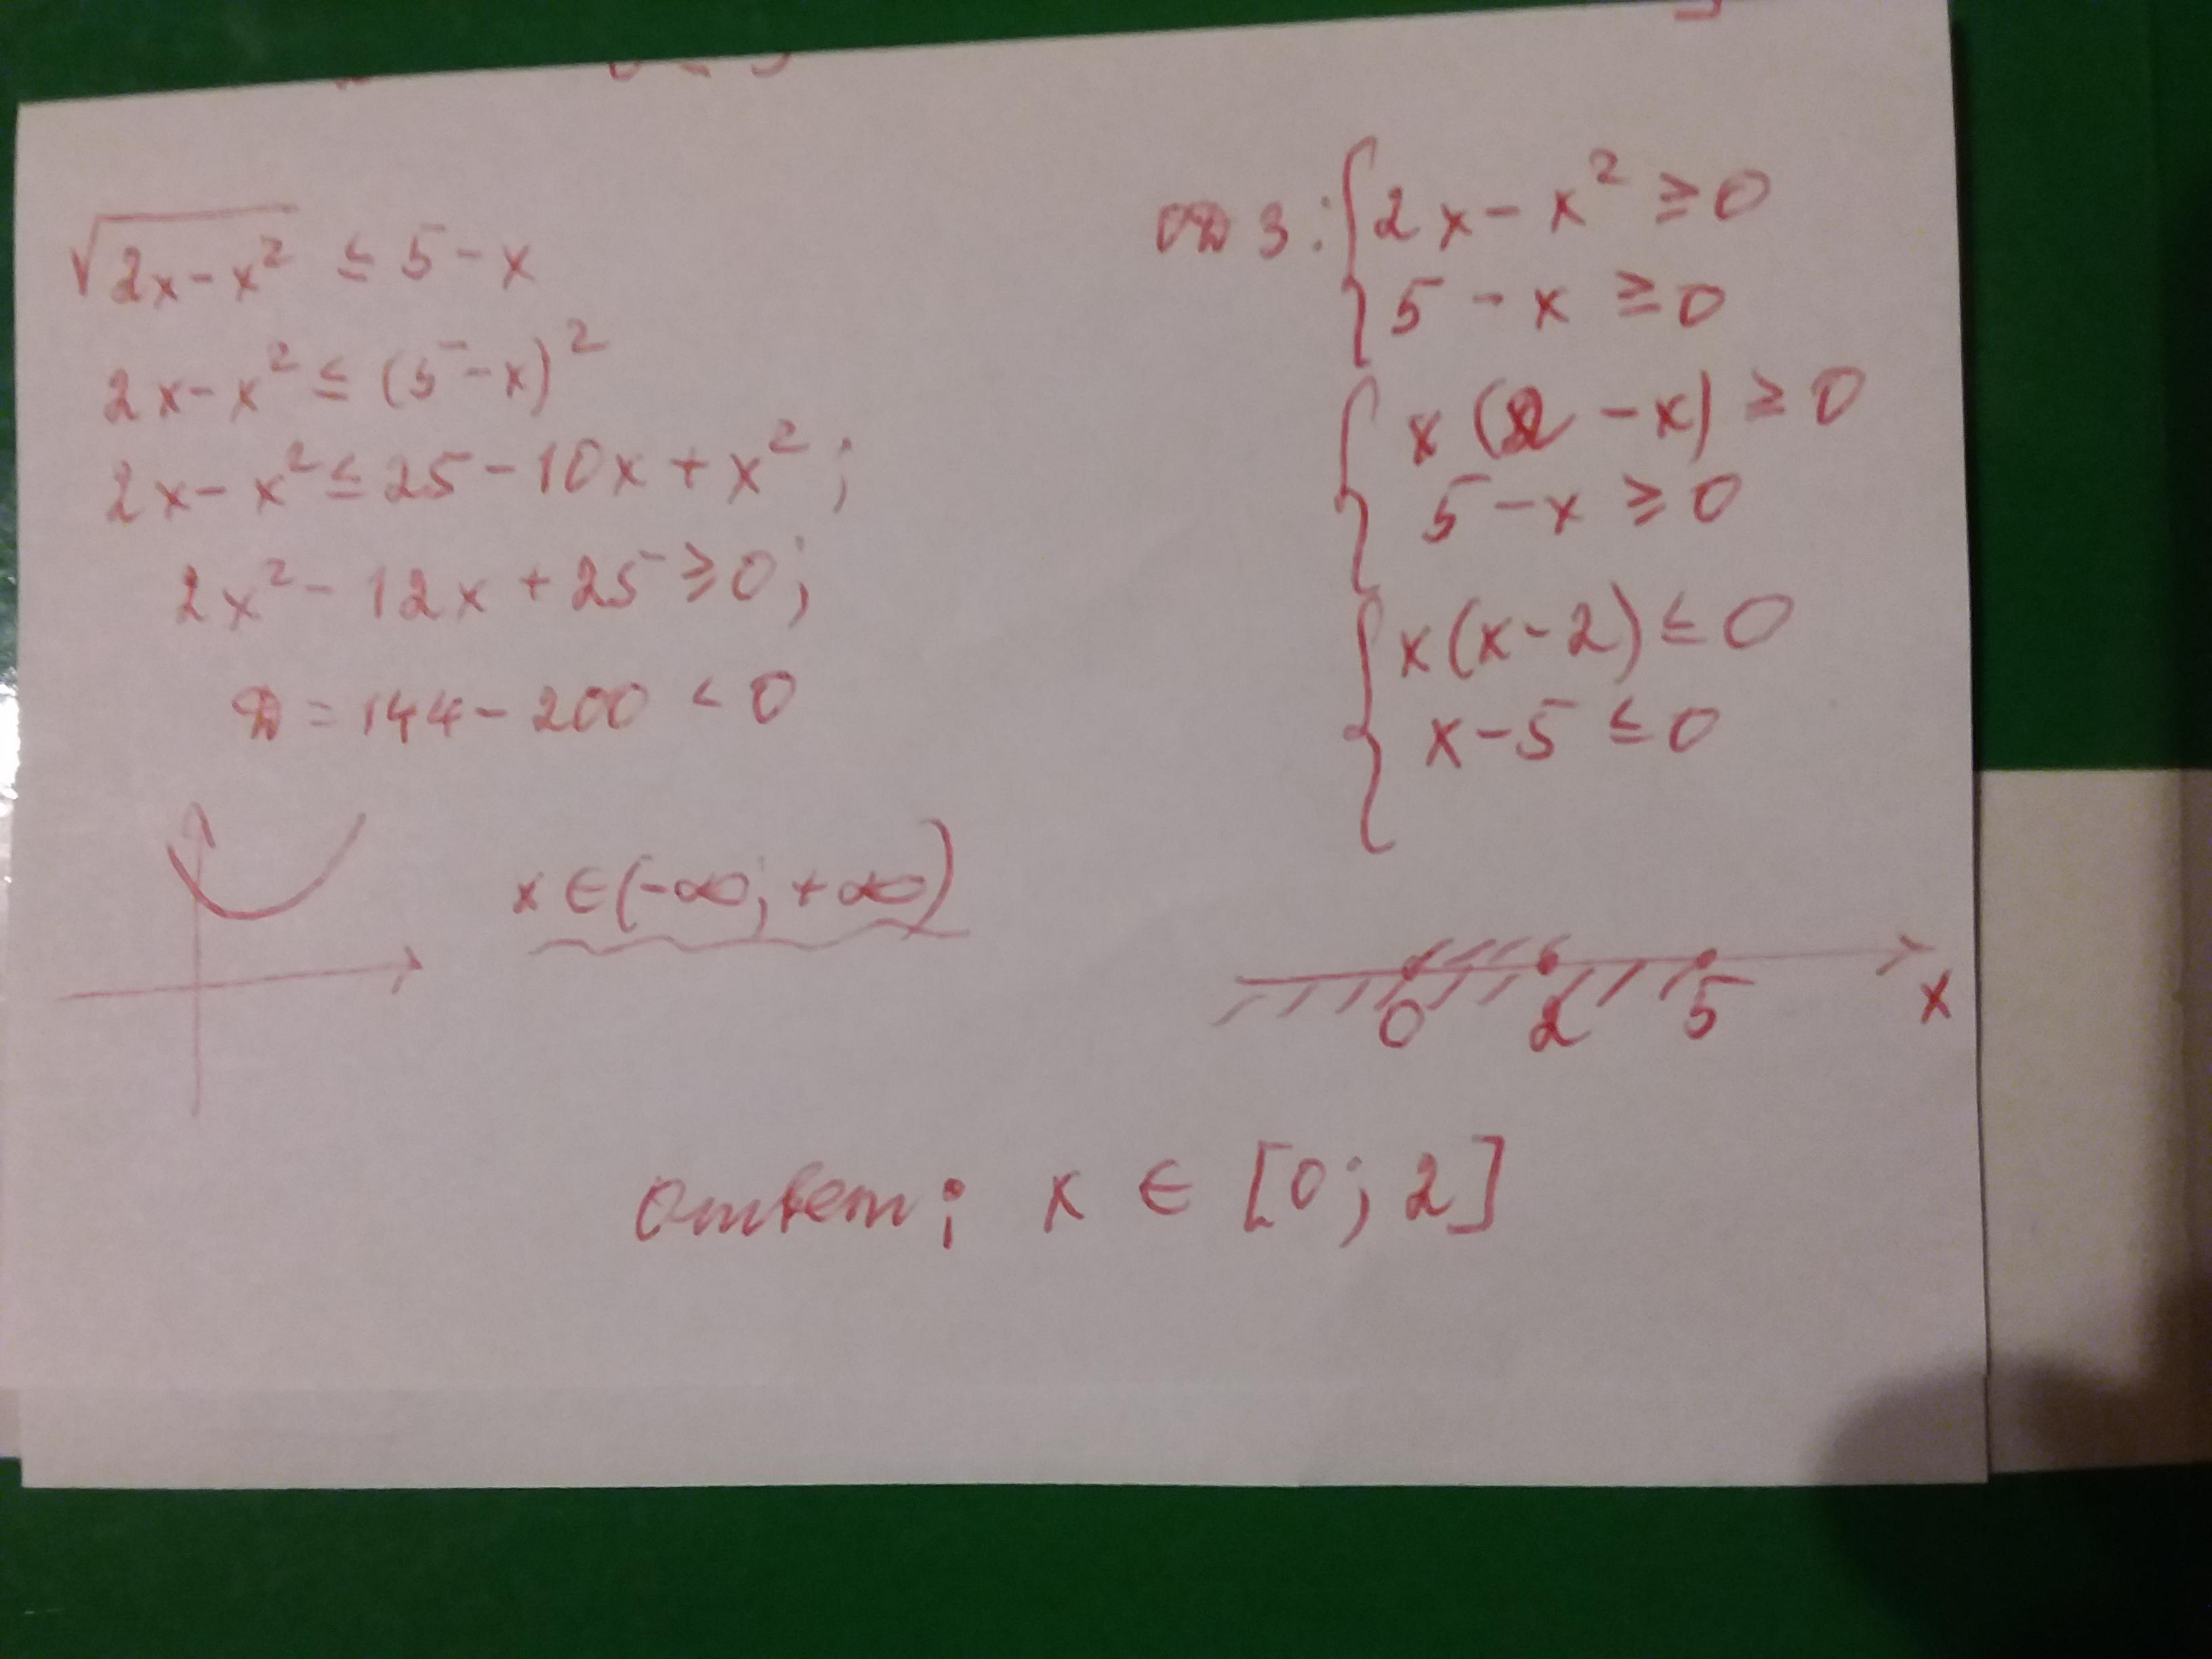 √2x-x² ≤ 5-x
2x-x² ≤ (5-x)²
2x-x² ≤ 25-10x+x²;
2x²-12x+25 ≥ 0;
D = 144-200 < 0
x ∈ (-∞; +∞)
ОДЗ: { 2x-x² ≥ 0
5-x ≥ 0
{ x(2-x) ≥ 0
5-x ≥ 0
{ x(x-2) ≤ 0
x-5 ≤ 0
0 2 5 x
Ответ: x ∈ [0; 2]